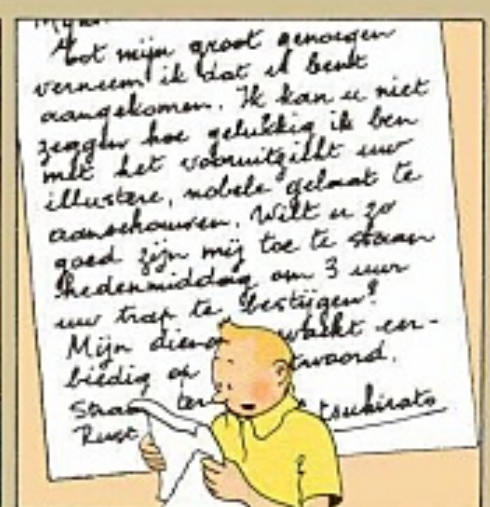 Tot mijn groot genoegen
verneem ik dat u bent
aangekomen. Ik kan u niet
zeggen hoe gelukkig ik ben
met het vooruitzicht uw
illustere, nobele gelaat te
aanschouwen. Wilt u zo
goed zijn mij toe te staan
hedenmiddag om 3 uur
uw trap te bestijgen?
Mijn wacht eer-
biedig op